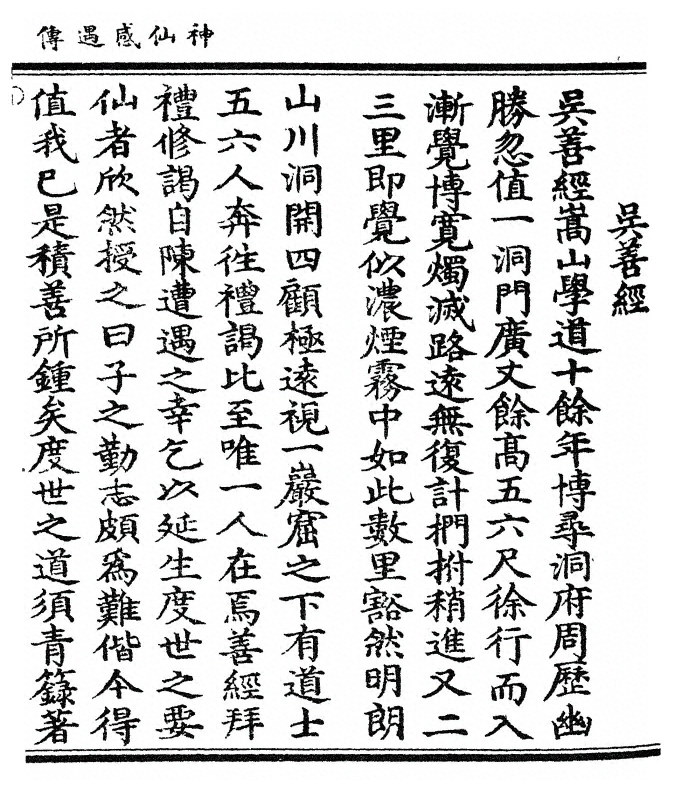 神仙感遇傳
吳善經
吳善經嵩山學道十餘年博尋洞府周歷幽
勝忽值一洞門廣丈餘高五六尺徐行而入
漸覺博寬燭滅路遠無復計捫拊稍進又二
三里即覺似濃煙霧中如此數里豁然明朗
山川洞開四顧極遠視一巖窟之下有道士
五六人奔往禮謁比至唯一人在焉善經拜
禮修謁自陳遭遇之幸乞以延生度世之要
仙者欣然授之曰子之勤志頗為難偕今得
值我已是積善所鍾矣度世之道須青籙著